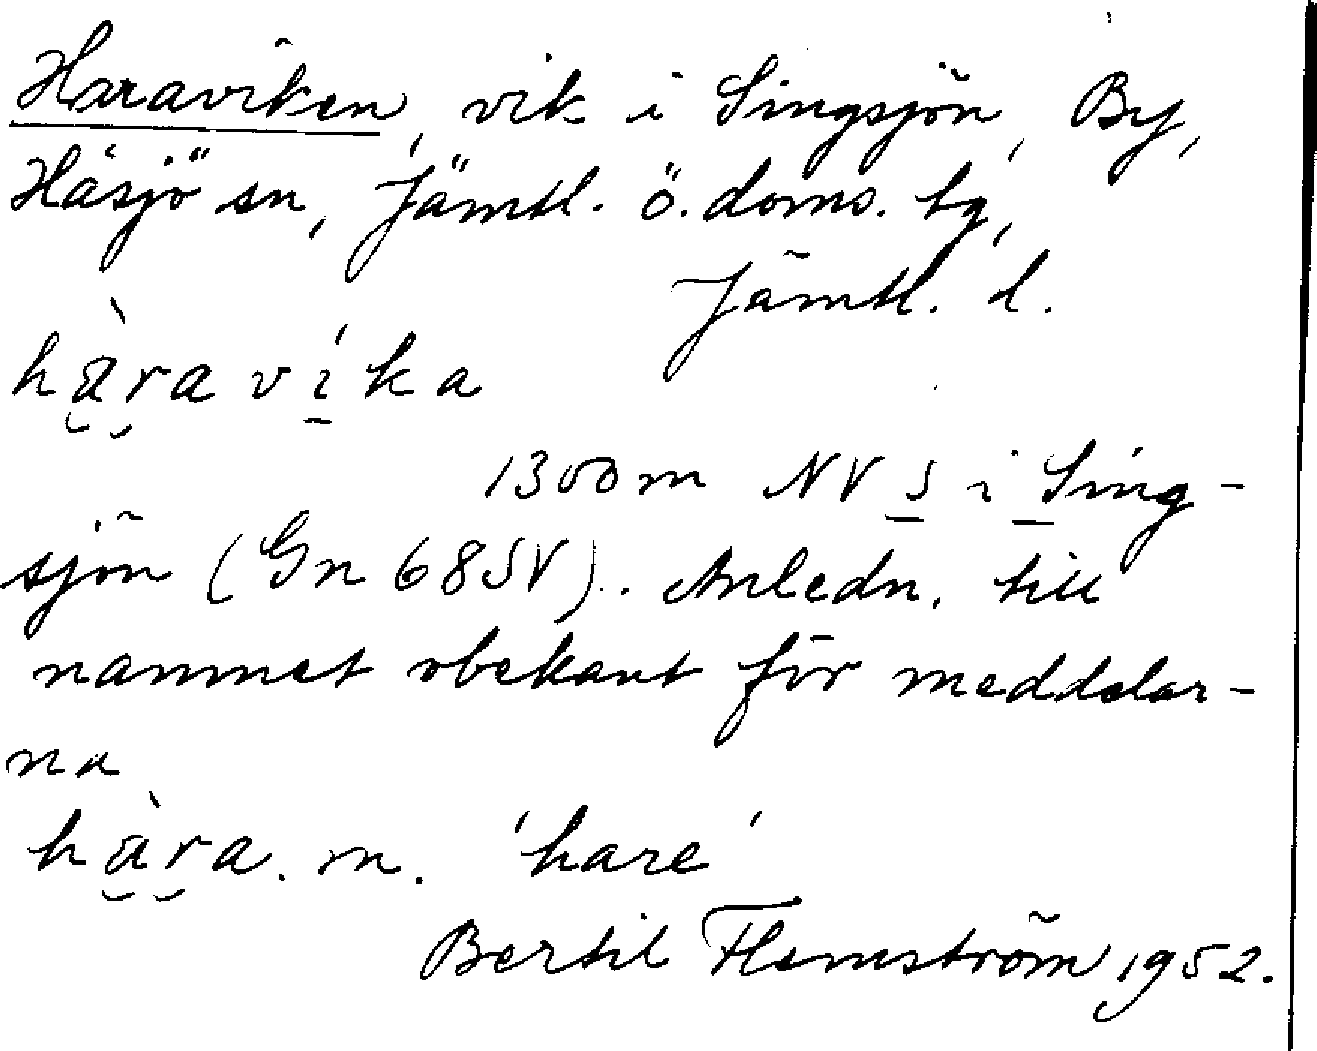 Haraviken, vik i Singsjön, By,
Häsjö sn, Jämtl. ö. doms. tg,
Jämtl. l.
hàravíka
1300 m NV S i Sing-
sjön (Gn 68SV). Anledn. till
namnet obekant för meddelar-
na
hàra. m. 'hare'
Bertil Flemström 1952.